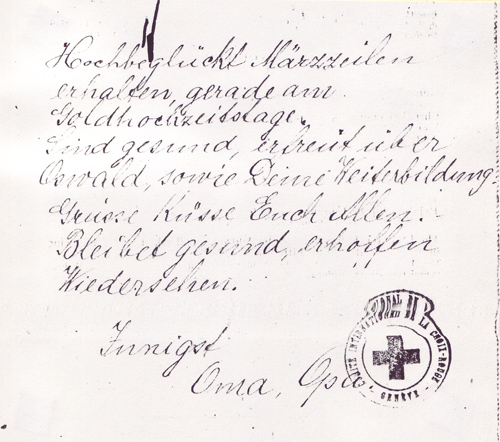 Hochbeglückt Märzzeilen
erhalten, gerade am
Goldhochzeitstage.
Sind gesund, erfreut über
Oswald, sowie Deine Weiterbildung.
Grüsse Küsse Euch Allen.
Bleibet gesund, erhoffen
Wiedersehen.
Innigst
Oma, Opa.
COMITÉ INTERNATIONAL DE LA CROIX-ROUGE
- GENÈVE -